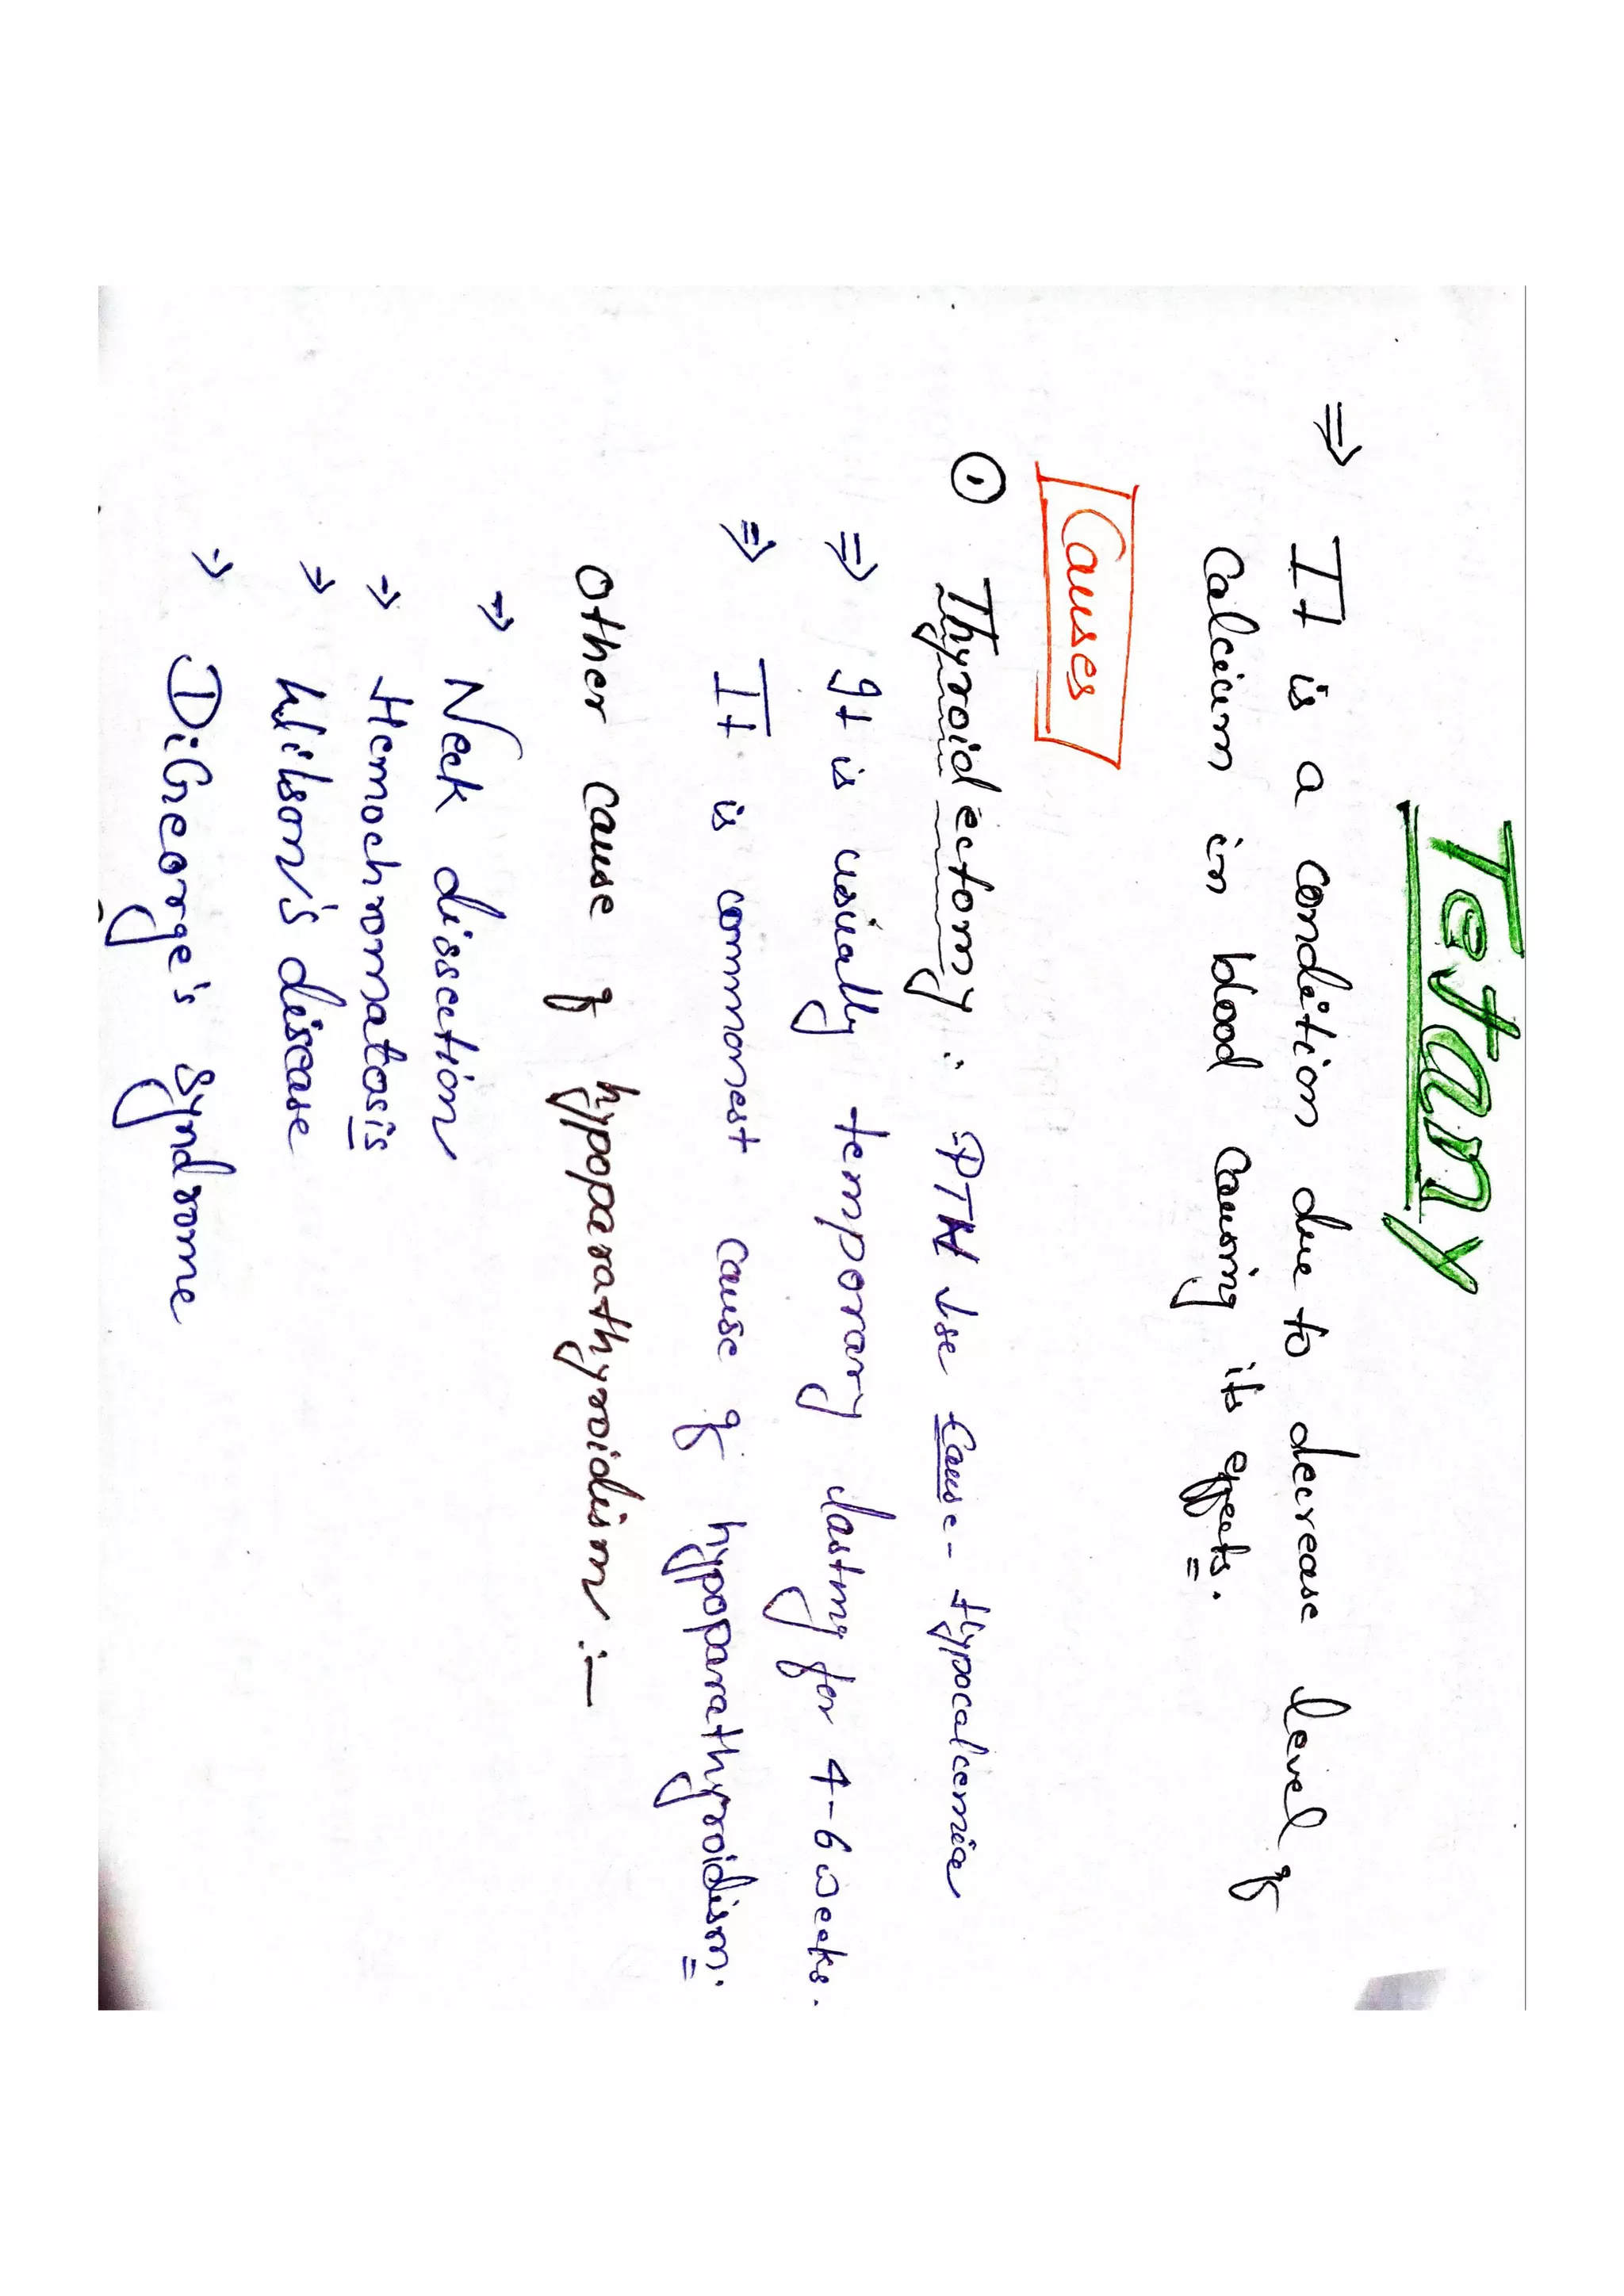 Tetany
⇒ It is a condition due to decrease level of
Calcium in blood causing its effects.
Causes
① Thyroidectomy : PTH ↓se Cause - Hypocalcemia
⇒ It is usually temporary lasting for 4-6 weeks.
⇒ It is commonest cause of hypoparathyroidism.
Other cause of hypoparathyroidism :-
→ Neck dissection
→ Hemochromatosis
→ Wilson's disease
→ DiGeorge's Syndrome